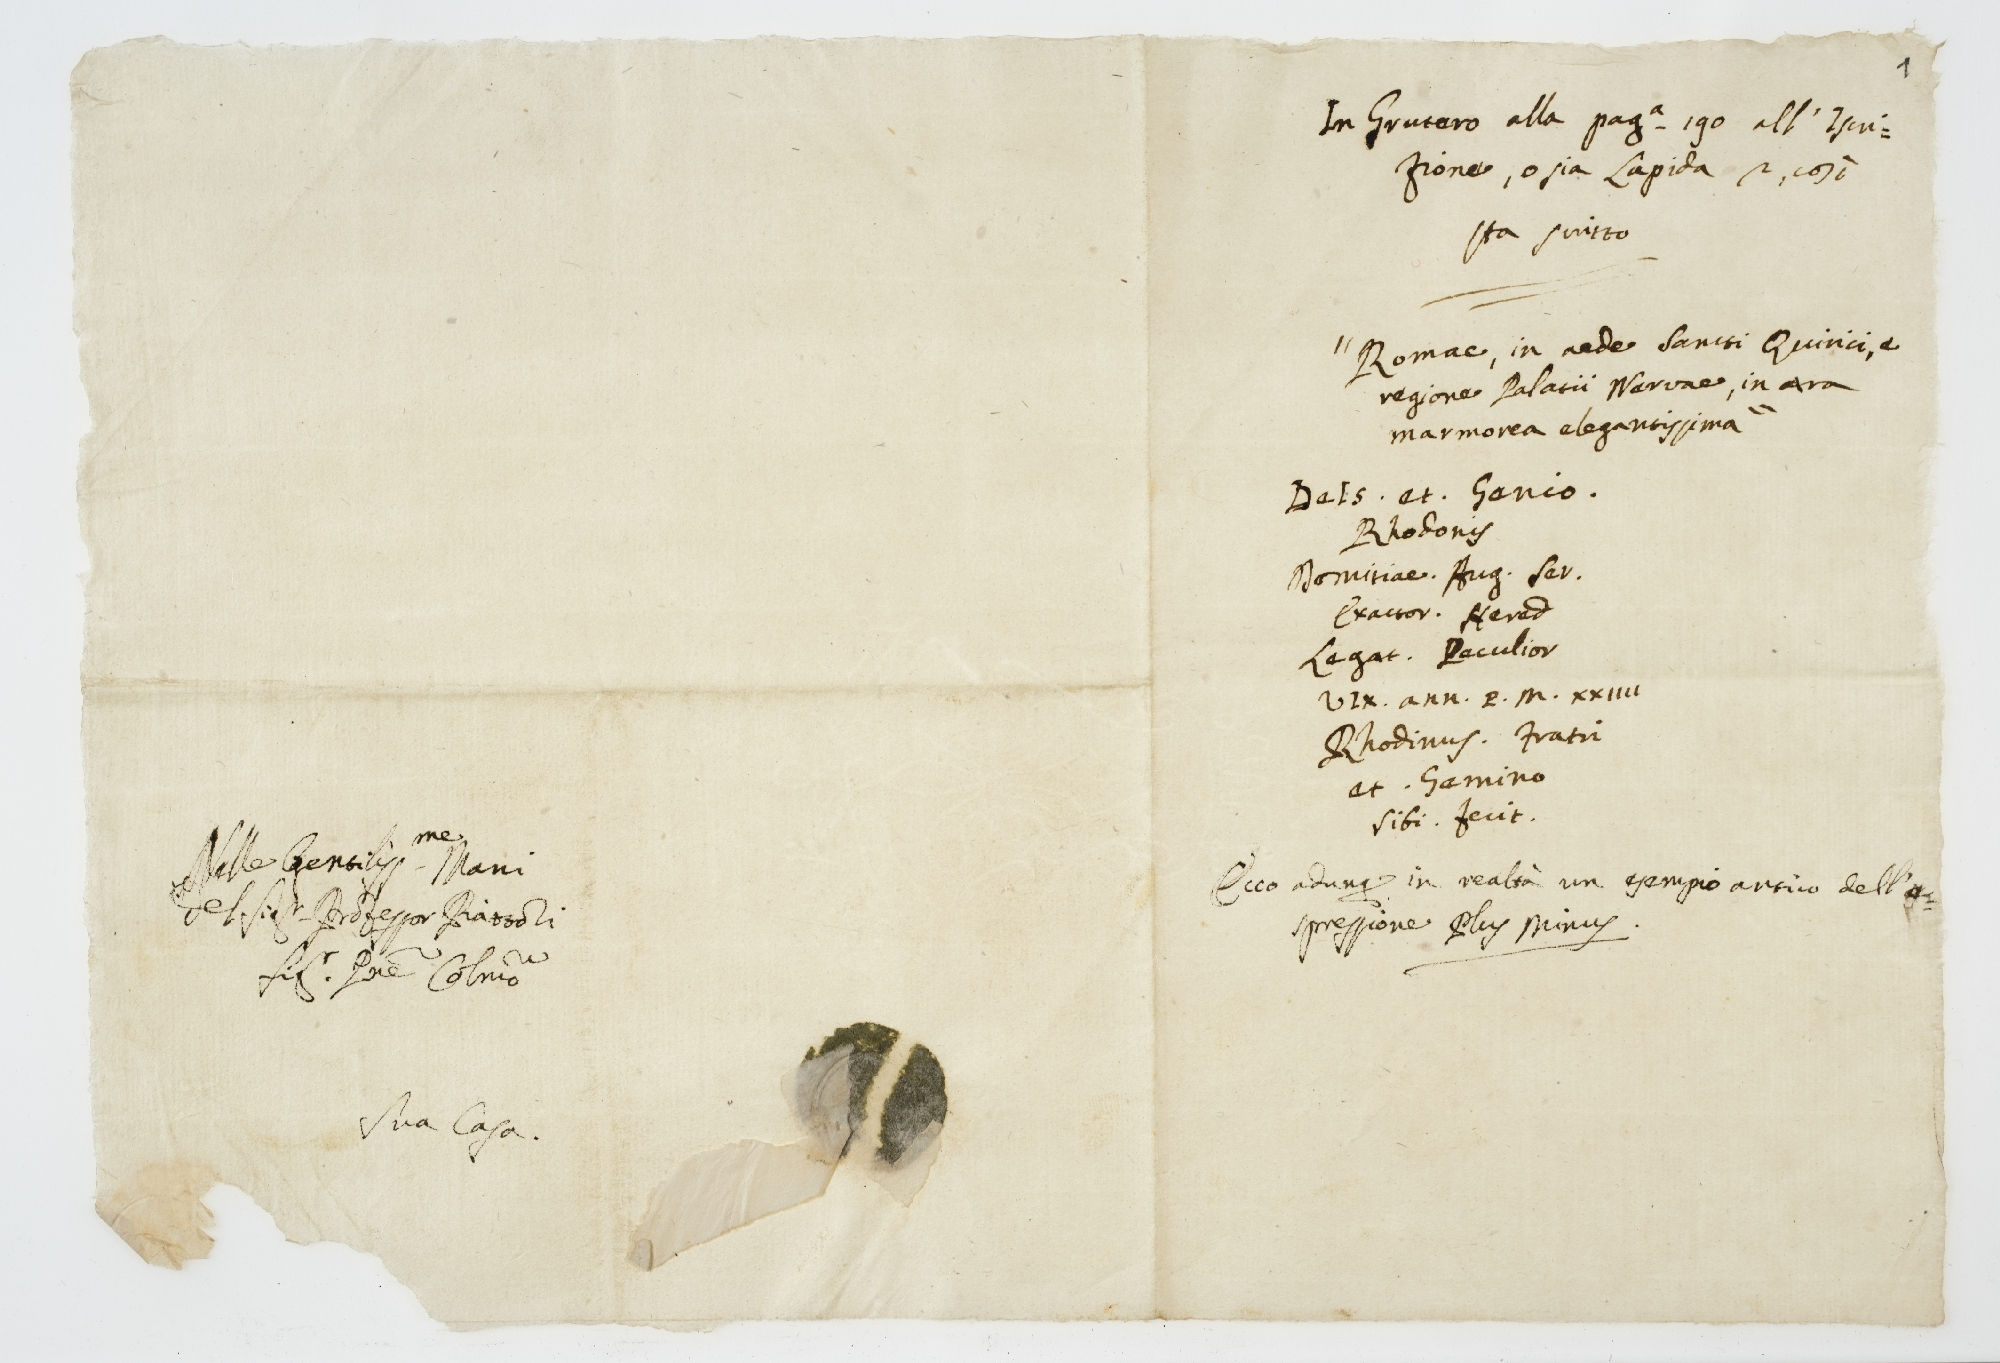 Nelle Gentiliss.me Mani
del Sigr. Professor Piattoli
Sigr. Pne
Sua Casa.
1
In Grutero alla pag.a 190 all' Iscri=
zione, o sia Lapida 2, così
sta scritto
"Romae, in aede Sancti Quirici, e
regione Palatii Nervae, in ara
marmorea elegantissima"
DeIs. et. Genio.
Rhodonis
Domitiae. Aug. Ser.
Exactor. Hered
Legat. Peculior
VIx. ann. P. M. xxIIII
Rhodinus. Fratri
et. Gemino
Sibi. Fecit.
Ecco adunq in realtà un esempio antico dell'e=
spressione Plus Minus.